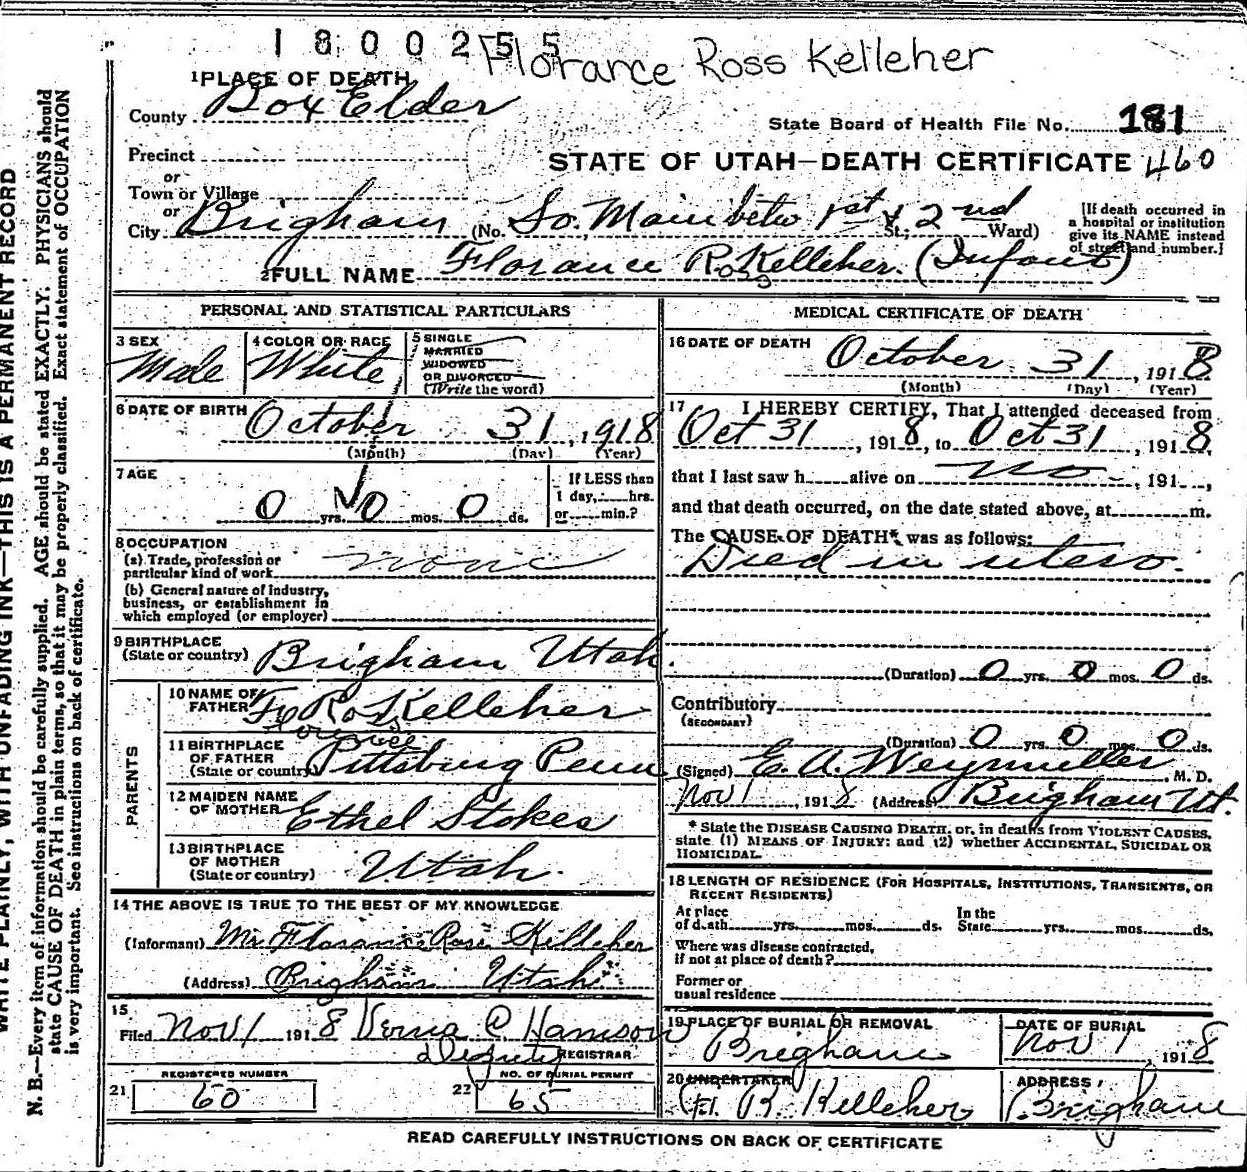 1800255
Florance Ross Kelleher
1 PLACE OF DEATH
County Box Elder
State Board of Health File No. 181
Precinct
or
STATE OF UTAH—DEATH CERTIFICATE 460
Town or Village
or
City Brigham (No. So. Main betw 1st & 2nd St.; Ward)
[If death occurred in
a hospital or institution
give its NAME instead
of street and number.]
2 FULL NAME Florance Ross Kelleher. (Infant)
PERSONAL AND STATISTICAL PARTICULARS
3 SEX
Male
4 COLOR OR RACE
White
5 SINGLE
MARRIED
WIDOWED
OR DIVORCED
(Write the word)
6 DATE OF BIRTH October 31, 1918
(Month) (Day) (Year)
7 AGE
0 yrs. 0 mos. 0 ds.
If LESS than
1 day,......hrs.
or......min.?
8 OCCUPATION
(a) Trade, profession or
particular kind of work none
(b) General nature of industry,
business, or establishment in
which employed (or employer)
9 BIRTHPLACE
(State or country) Brigham Utah.
PARENTS
10 NAME OF
FATHER Ross Kelleher
11 BIRTHPLACE
OF FATHER
(State or country) Pittsburg Penn
12 MAIDEN NAME
OF MOTHER Ethel Stokes
13 BIRTHPLACE
OF MOTHER
(State or country) Utah.
14 THE ABOVE IS TRUE TO THE BEST OF MY KNOWLEDGE
(Informant) Mr Florance Ross Kelleher
(Address) Brigham Utah
15
Filed Nov 1 1918 Verna C. Hamson
Deputy REGISTRAR
REGISTERED NUMBER
21 60
NO. OF BURIAL PERMIT
22 65
MEDICAL CERTIFICATE OF DEATH
16 DATE OF DEATH October 31, 1918
(Month) (Day) (Year)
17 I HEREBY CERTIFY, That I attended deceased from
Oct 31, 1918, to Oct 31, 1918,
that I last saw h......alive on no, 191...,
and that death occurred, on the date stated above, at......m.
The CAUSE OF DEATH* was as follows:
Died in utero.
(Duration) 0 yrs. 0 mos. 0 ds.
Contributory
(SECONDARY)
(Duration) 0 yrs. 0 mos. 0 ds.
(Signed) E. A. Weymuller, M. D.
Nov 1, 1918 (Address) Brigham Ut.
* State the DISEASE CAUSING DEATH, or, in deaths from VIOLENT CAUSES,
state (1) MEANS OF INJURY; and (2) whether ACCIDENTAL, SUICIDAL OR
HOMICIDAL.
18 LENGTH OF RESIDENCE (FOR HOSPITALS, INSTITUTIONS, TRANSIENTS, OR
RECENT RESIDENTS)
At place
of death......yrs......mos......ds.
In the
State......yrs......mos......ds.
Where was disease contracted,
if not at place of death?
Former or
usual residence
19 PLACE OF BURIAL OR REMOVAL
Brigham
DATE OF BURIAL
Nov 1, 1918
20 UNDERTAKER
Fl. R. Kelleher
ADDRESS
Brigham
READ CAREFULLY INSTRUCTIONS ON BACK OF CERTIFICATE
WRITE PLAINLY, WITH UNFADING INK—THIS IS A PERMANENT RECORD
N. B.—Every item of information should be carefully supplied. AGE should be stated EXACTLY. PHYSICIANS should
state CAUSE OF DEATH in plain terms, so that it may be properly classified. Exact statement of OCCUPATION
is very important. See instructions on back of certificate.